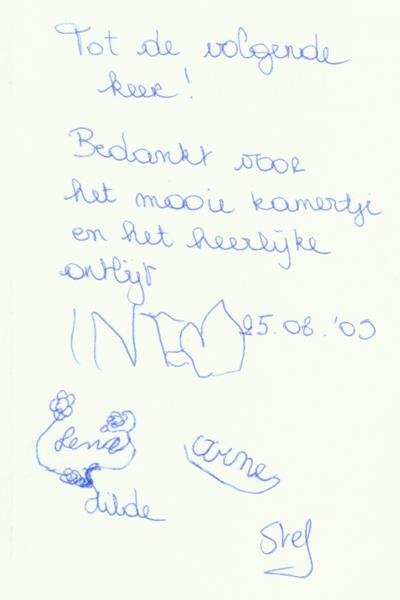 Tot de volgende
keer!
Bedankt voor
het mooie kamertje
en het heerlijke
ontbijt
25.08.'09
Lena
Arne
Hilde
Stef